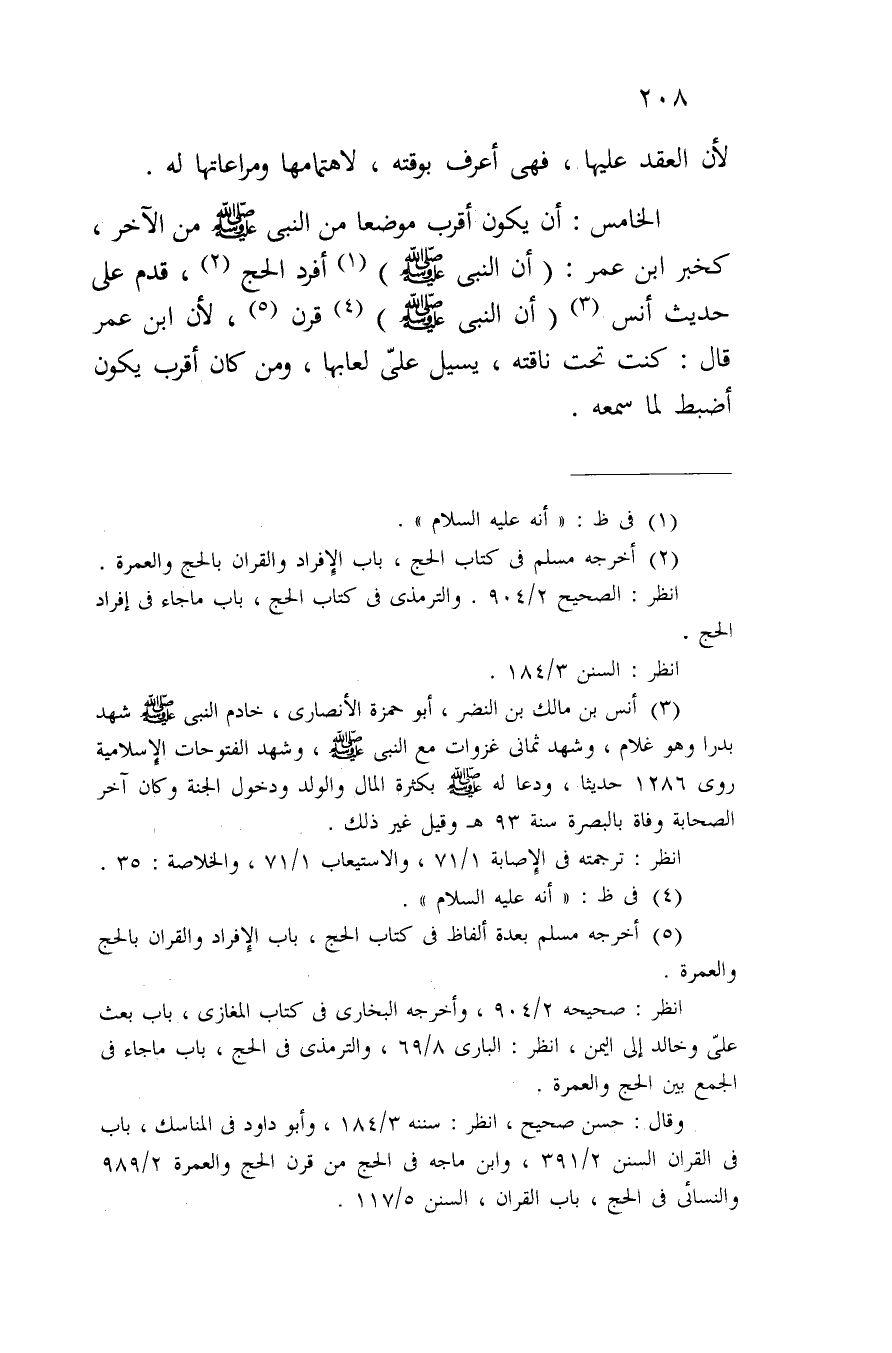 ٢٠٨
لأن العقد عليها ، فهى أعرف بوقته ، لاهتمامها ومراعاتها له .
الخامس : أن يكون أقرب موضعا من النبى ﷺ من الآخر ،
كخبر ابن عمر : ( أن النبى ﷺ ) (١) أفرد الحج (٢) ، قدم على
حديث أنس (٣) ( أن النبى ﷺ ) (٤) قرن (٥) ، لأن ابن عمر
قال : كنت تحت ناقته ، يسيل علىّ لعابها ، ومن كان أقرب يكون
أضبط لما سمعه .
(١) فى ظ : « أنه عليه السلام » .
(٢) أخرجه مسلم فى كتاب الحج ، باب الإفراد والقران بالحج والعمرة .
انظر : الصحيح ٩٠٤/٢ . والترمذى فى كتاب الحج ، باب ماجاء فى إفراد
الحج .
انظر : السنن ١٨٤/٣ .
(٣) أنس بن مالك بن النضر ، أبو حمزة الأنصارى ، خادم النبى ﷺ شهد
بدرا وهو غلام ، وشهد ثمانى غزوات مع النبى ﷺ ، وشهد الفتوحات الإسلامية
روى ١٢٨٦ حديثا ، ودعا له ﷺ بكثرة المال والولد ودخول الجنة وكان آخر
الصحابة وفاة بالبصرة سنة ٩٣ هـ وقيل غير ذلك .
انظر : ترجمته فى الإصابة ٧١/١ ، والاستيعاب ٧١/١ ، والخلاصة : ٣٥ .
(٤) فى ظ : « أنه عليه السلام » .
(٥) أخرجه مسلم بعدة ألفاظ فى كتاب الحج ، باب الإفراد والقران بالحج
والعمرة .
انظر : صحيحه ٩٠٤/٢ ، وأخرجه البخارى فى كتاب المغازى ، باب بعث
علىّ وخالد إلى اليمن ، انظر : البارى ٦٩/٨ ، والترمذى فى الحج ، باب ماجاء فى
الجمع بين الحج والعمرة .
وقال : حسن صحيح ، انظر : سننه ١٨٤/٣ ، وأبو داود فى المناسك ، باب
فى القران السنن ٣٩١/٢ ، وابن ماجه فى الحج من قرن الحج والعمرة ٩٨٩/٢
والنسائى فى الحج ، باب القران ، السنن ١١٧/٥ .